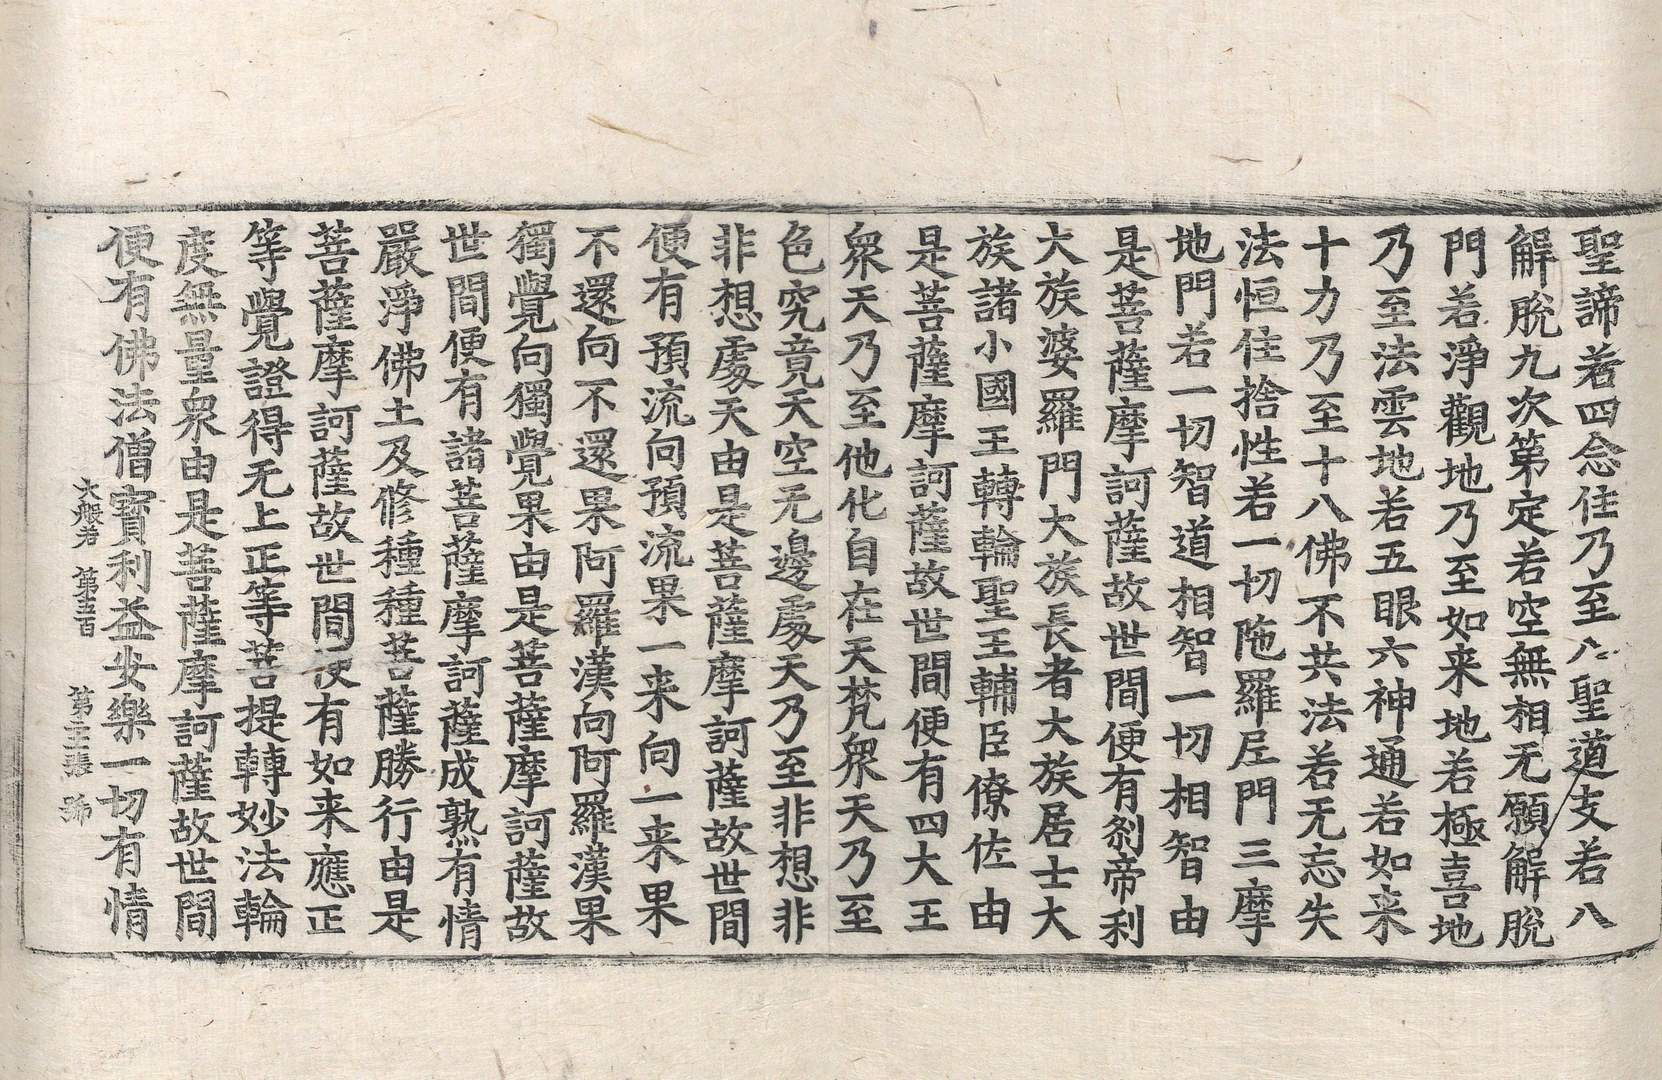 聖諦若四念住乃至八聖道支若八
解脫九次第定若空無相无願解脫
門若淨觀地乃至如来地若極喜地
乃至法雲地若五眼六神通若如来
十力乃至十八佛不共法若无忘失
法恒住捨性若一切陁羅尼門三摩
地門若一切智道相智一切相智由
是菩薩摩訶薩故世間便有刹帝利
大族婆羅門大族長者大族居士大
族諸小國王轉輪聖王輔臣僚佐由
是菩薩摩訶薩故世間便有四大王
衆天乃至他化自在天梵衆天乃至
色究竟天空无邊處天乃至非想非
非想處天由是菩薩摩訶薩故世間
便有預流向預流果一来向一来果
不還向不還果阿羅漢向阿羅漢果
獨覺向獨覺果由是菩薩摩訶薩故
世間便有諸菩薩摩訶薩成熟有情
嚴淨佛土及修種種菩薩勝行由是
菩薩摩訶薩故世間便有如来應正
等覺證得无上正等菩提轉妙法輪
度無量衆由是菩薩摩訶薩故世間
便有佛法僧寶利益安樂一切有情
大般若 第五百 第二 張 號